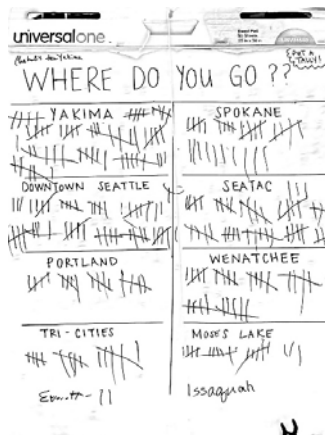 universal one
WHERE DO YOU GO ??
YAKIMA
SPOKANE
DOWNTOWN SEATTLE
SEATAC
PORTLAND
WENATCHEE
TRI-CITIES
MOSES LAKE
Everett - 11
Issaquah